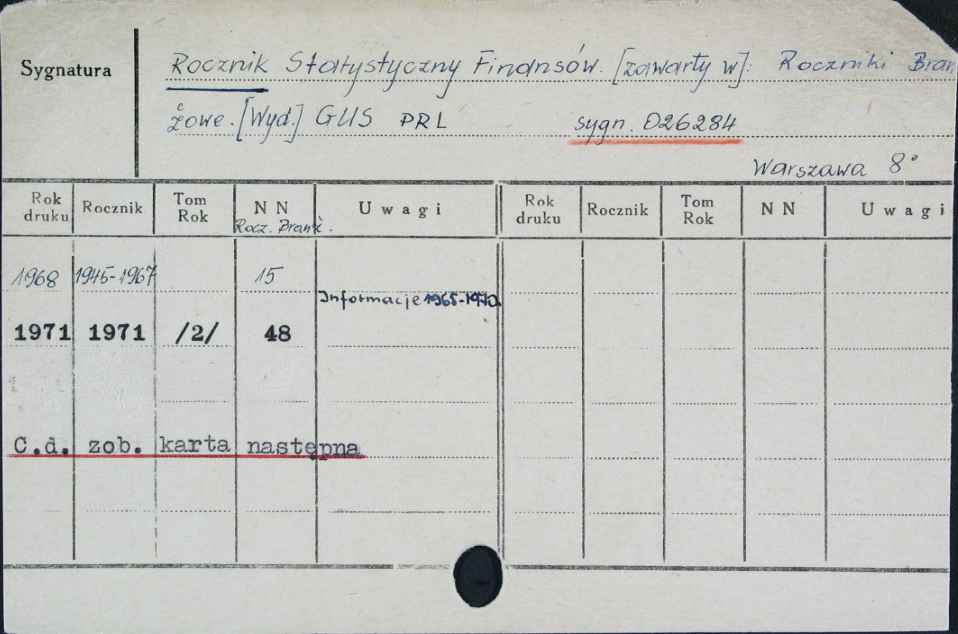 Sygnatura
Rocznik Statystyczny Finansów. [zawarty w]: Roczniki Bran
żowe. [Wyd.] GUS PRL sygn. 026284
Warszawa 8°
Rok druku Rocznik Tom Rok NN Uwagi Rok druku Rocznik Tom Rok NN Uwagi
Rocz. Branż.
1968 1945-1967 15
Informacje 1965-1970
1971 1971 /2/ 48
C.d. zob. karta następna